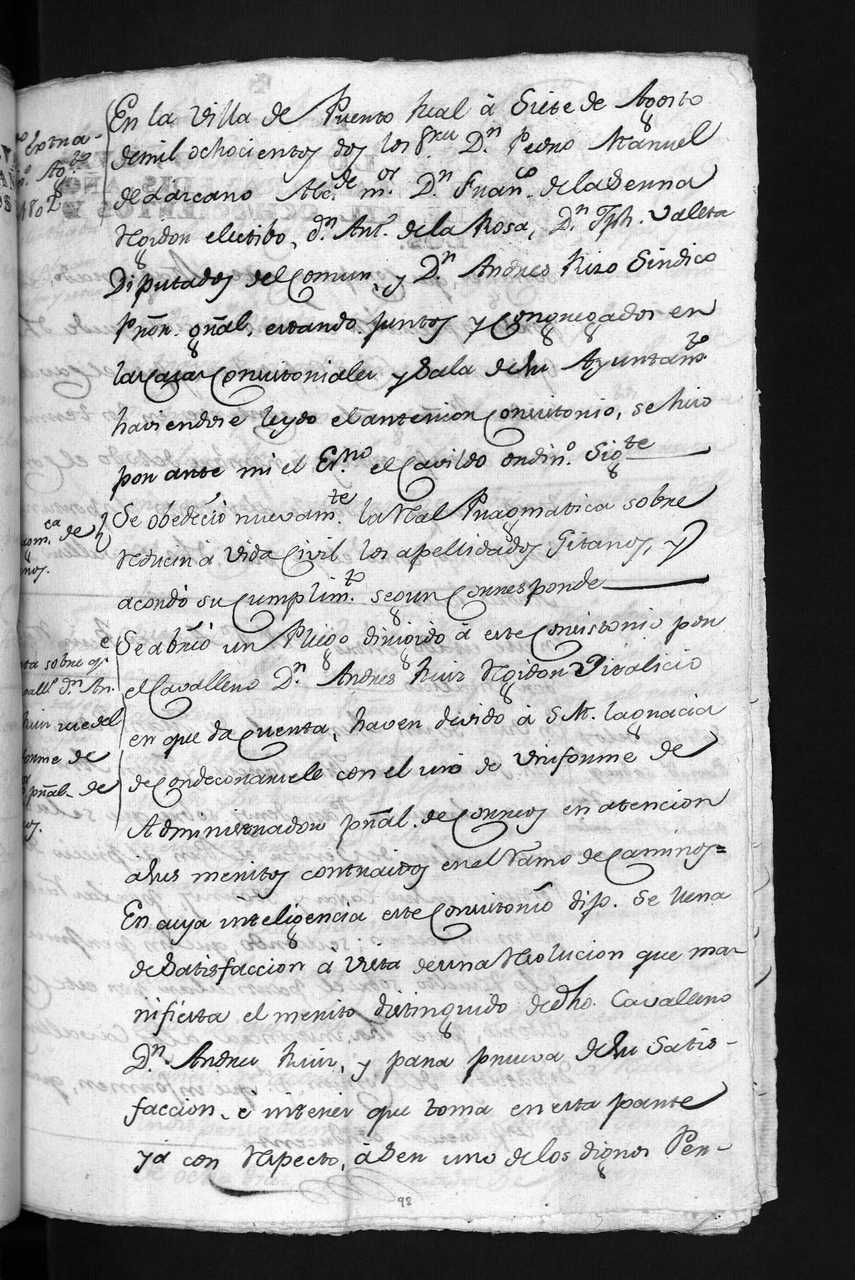 En la Villa de Puerto Real à Siete de Agosto
de mil ochocientos dos los Sres. Dn. Pedro Manuel
de Larcano Alcde. mor. Dn. Franco. de la Serna
Rejidor electibo, dn. Ant. de la Rosa, Dn. Jph. Valeta
Diputados del Comun, y Dn. Andres Rizo Sindico
Pror. gñal, estando juntos y Congregados en
las Casas Consistoriales y Sala de su Ayuntamto.
haviendose leydo el anterior Consistorio, se hizo
por ante mi el Esno. el Cavildo ordino. Sigte
Se obedeciò nuevamte. la Rl Pragmatica sobre
reducir à Vida Civil los apellidados Gitanos, y
acordó su Cumplimto. segun Corresponde
Se abriò un Pliego dirigido à este Consistorio por
el Cavallero Dn. Andres Ruiz Regidor Vitalicio
en que da Cuenta, haver devido à S.M. la gracia
de Condecorarsele con el uso de Vniforme de
Administrador pñal. de Correos en atencion
à sus meritos contraidos en el Ramo de Caminos=
En cuya inteligencia este Consistorio dijo. Se llena
de Satisfaccion a Vista de una Resolucion que ma-
nifiesta el merito distinguido de dho. Cavallero
Dn. Andres Ruiz, y para prueva de su Satis-
faccion, è interes que toma en esta parte
yá con respecto, à Ser uno de los dignos Per-
do Extra-
Agto
1802
pragmca de
nos.
ta sobre qe
Cavallo dn An.
Ruiz use del
forme de
pñal de
os.
98